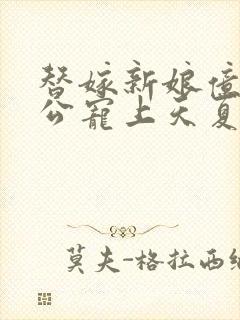 替嫁新娘亿
公宠上天夏
莫夫-格拉西纳